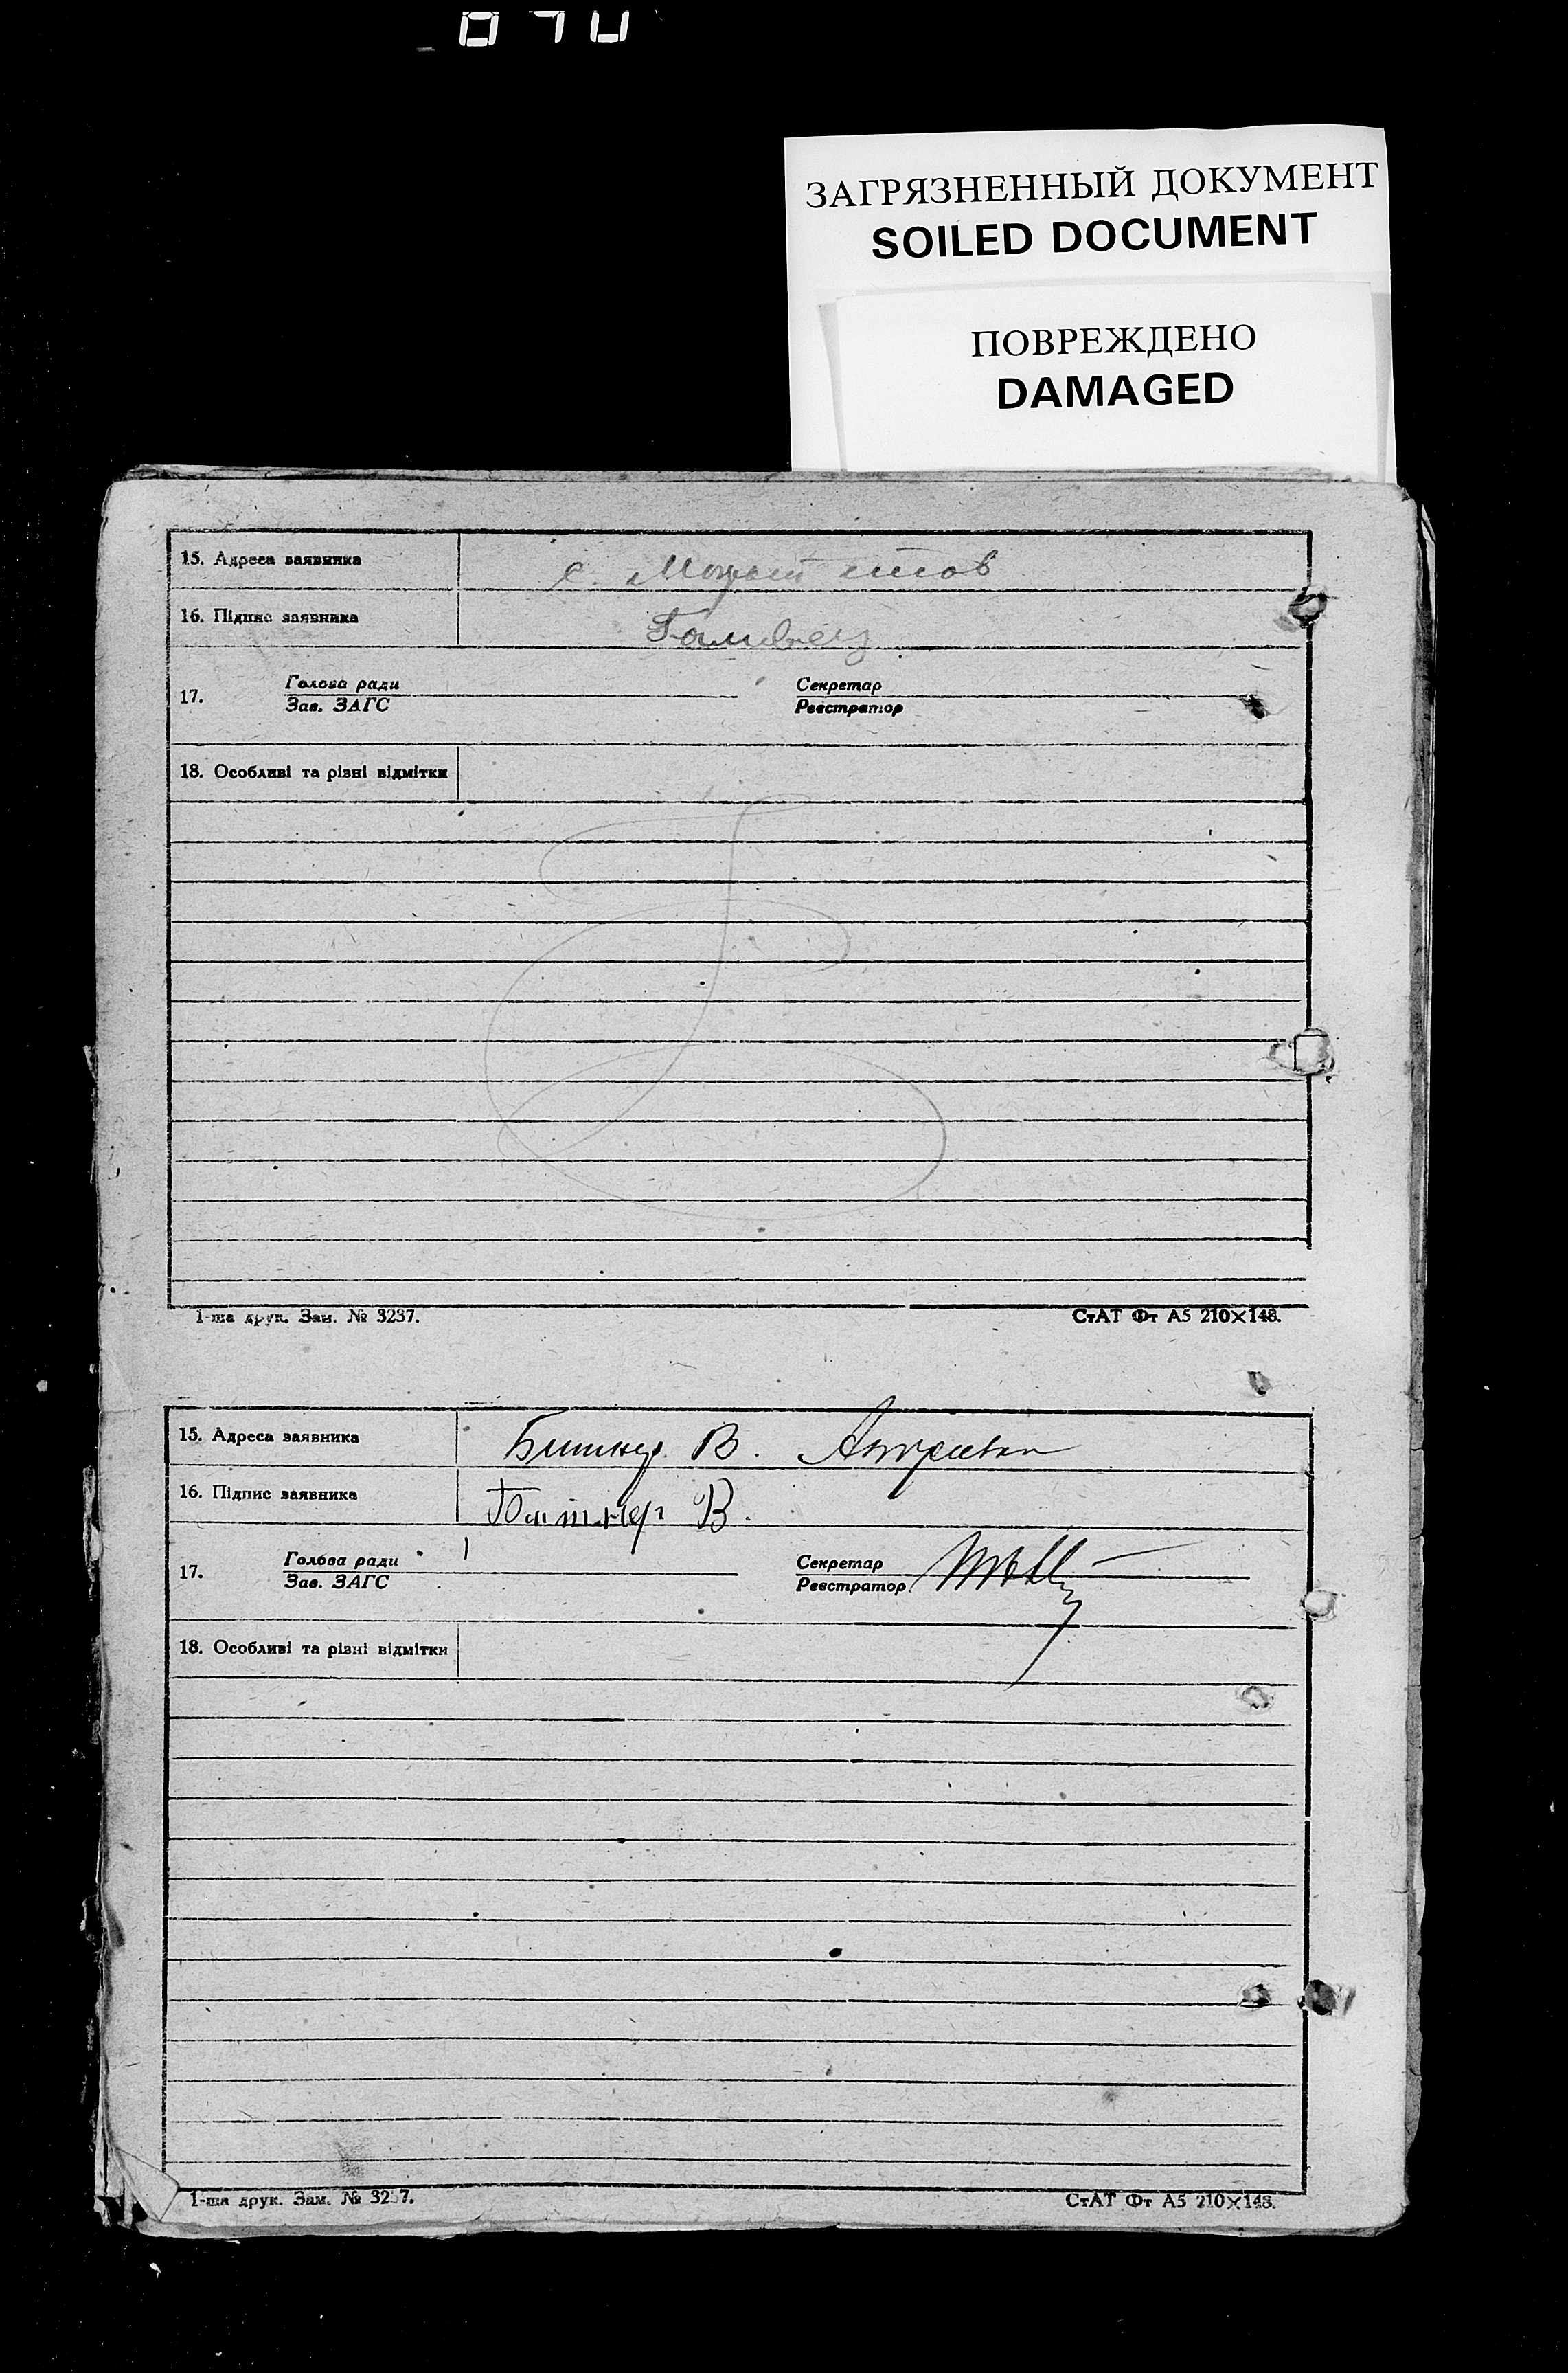 070
ЗАГРЯЗНЕННЫЙ ДОКУМЕНТ
SOILED DOCUMENT
ПОВРЕЖДЕНО
DAMAGED
15. Адреса заявника с.
16. Підпис заявника
17. Голова ради Секретар
Зав. ЗАГС Реєстратор
18. Особливі та різні відмітки
1-ша друк. Зам. № 3237. СтАТ Фт А5 210×148.
15. Адреса заявника В.
16. Підпис заявника В.
17. Голова ради Секретар
Зав. ЗАГС Реєстратор
18. Особливі та різні відмітки
1-ша друк. Зам. № 3237. СтАТ Фт А5 210×148.